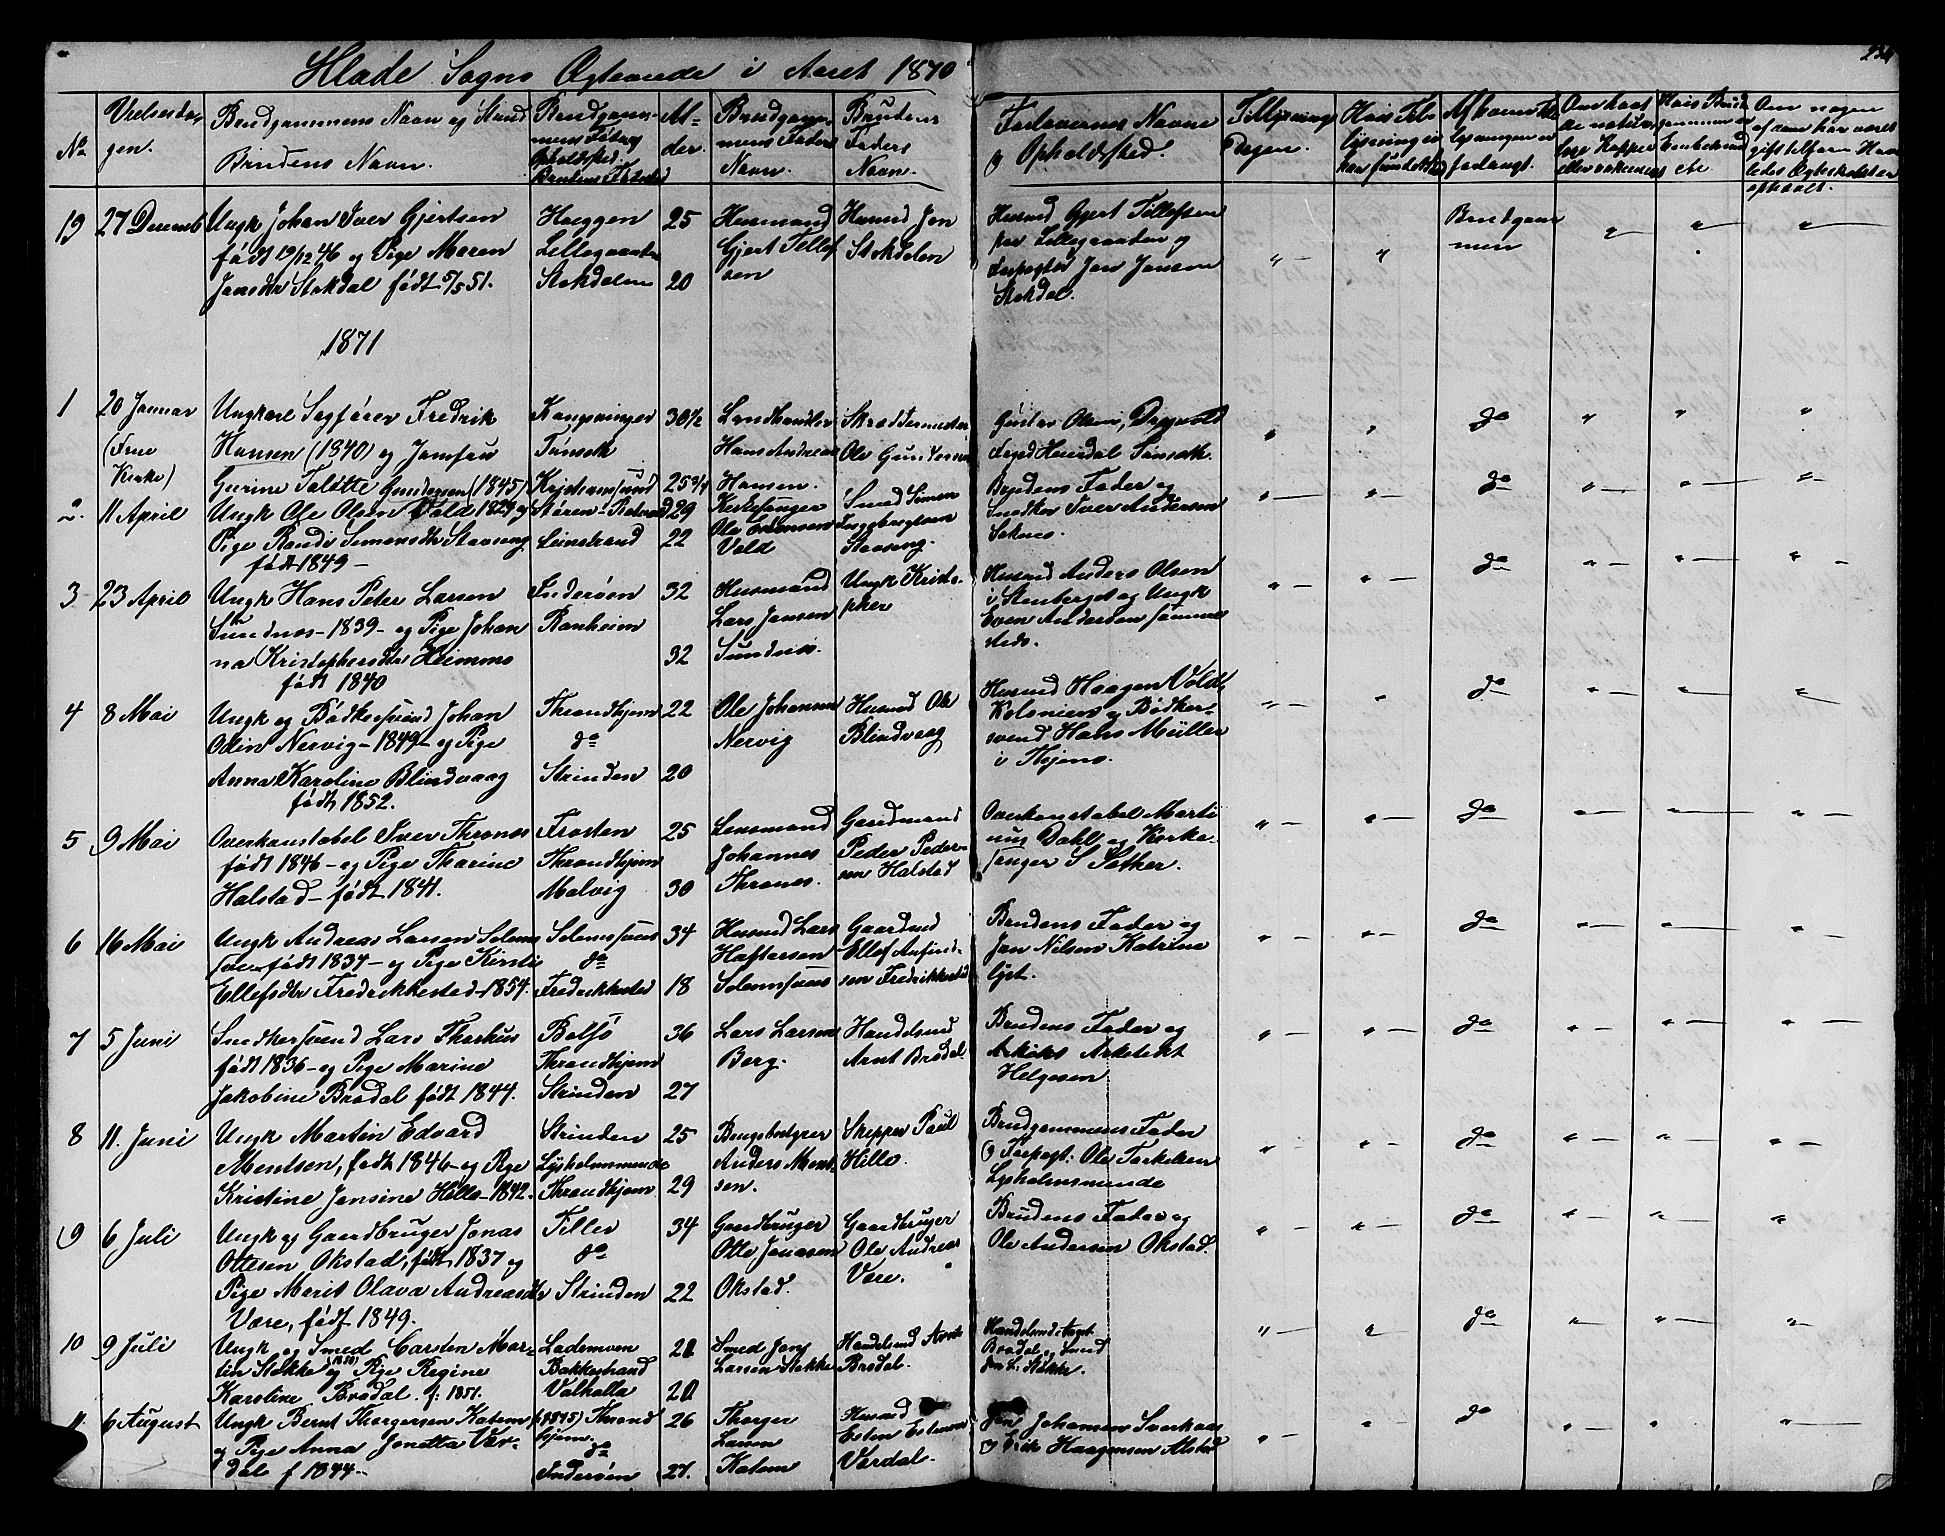 Hlade Sogns Ægteviede i Aaret 1870
234
No
Vielsesda-
gen.
Brudgommens Navn og Stand
Brudens Navn.
Brudgom-
mens Fødested
Opholdssted.
Brudens Fødested
Al-
der.
Brudgom-
mens Faders
Navn.
Brudens
Faders
Navn.
Forlovernes Navne
og Opholdssted.
Tillysnings
Dagen.
Hvis Til-
lysning ei
har fundet Sted
Af hvem
lysningen er
forlangt.
Om havt
de naturlige Kopper
eller vaksineret
Hvis Brud-
gommen er
Enkemand
etc
Om nogen
af dem har været
gift tilforn Hvor-
ledes Ægteskabet er
ophævet.
19
27 Decemb
Ungk Johan Iver Gjertsen
født 19/12 46 og Pige Maren
Jonsdtr Stokdal født 5/5 51.
Haeggen
Lillegaarden
Stokdalen
25
20
Husmand
Gjert Tellef
sen
Husmd Jon
Stokdalen
Husmd Gjert Tellefsen
paa Lillegaarden og
Forpagter Jon Jonsen
Stokdal.
Brudgom
men
1871
1
20 Januar
(Frue
Kirke)
Ungkarl Sagfører Fredrik
Hansen (1840) og Jomfru
Gurine Tolotte Gundersen (1845)
Kongsvinger
Tønset
Kristiansund
30 1/2
25 3/4
Landhandler
Hans Andreas
Hansen.
Skræddermester
Ole Gundersen
Gustav Olsen, Dragvold
Heirdal Tønseth.
do
2.
11 April
Ungk Ole Olsen Vold 1829 og
Pige Randi Simonsdtr Stavseng
født 1849 -
Støren
Leinstrand
29
22
Kirkesanger
Ole Estensen
Vold
Smed Simon
Stavseng.
Brudens Fader og
Snedker Iver Andersen
Soknes.
do
3
23 April
Ungk Hans Peter Larsen
Sundnes - 1839 - og Pige Johan
na Kristophersdtr Heimmo
født 1840
Inderøen
Ranheim
32
32
Husmand
Lars Jansen
Sundnes.
Ungk Kristo-
pher
Husmd Anders Olsen
i Stenberget og Ungk
Even Andersen samme
steds.
do
4
8 Mai
Ungk og Bødkersvend Johan
Odin Nervig - 1849 - og Pige
Anna Karoline Blindvaag
født 1852.
Throndhjem
do
Strinden
22
20
Ole Johansen
Nervig
Husmd Ole
Blindvaag
Husmd Haagen Vold,
Kolonien og Bødker-
svend Hans Müller
i Thjem.
do
5
9 Mai
Overkonstabel Iver Thrones
født 1846 - og Pige Tharine
Halstad - født 1841.
Frosten
Throndhjem
Malvig
25
30
Lensmand
Johannes
Thrones.
Gaardmand
Peder Peder-
sen Halstad
Overkonstabel Marti
nus Dahl og Kirke-
sanger S Sæther.
do
6
16 Mai
Ungk Andreas Larsen Solems
svee født 1837 - og Pige Kirsti
Ellefsdtr Fredrikkested - 1854.
Solemsvee
do
Fredrikkested
34
18
Husmd Lars
Haftorsen
Solemsvee
Gaardmd
Ellef Anfind-
sen Fredrikkested
Brudens Fader og
Jon Nilsen Katrine
lyst.
do
7
5 Juni
Snedkersvend Lars Thorhus
født 1836 - og Pige Marine
Jakobine Brødal født 1844.
Bolsø
Throndhjem
Strinden
36
27
Lars Larsen
Berg.
Handelsmd
Arnt Brødal
Brudens Fader og
Arkitekt
Helgesen
do
8
11. Juni
Ungk Martin Edvard
Mentsen, født 1846 - og Pige
Kristine Jensine Hello - 1842.
Strinden
Lysholmsminde
Throndhjem
25
29
Anders Ment-
sen.
Skipper Paul
Hello.
Brudgommens Fader
og Forpagt: Ole Torkelsen
Lysholmsminde
do
9
6 Juli
Ungk og Gaardbruger Jonas
Ottesen Okstad, født 1837 og
Pige Marit Olava Andreasdtr
Være, født 1849.
Tiller
do
Strinden
34
22
Gaardbruger
Otte Jonasen
Okstad.
Gaardbruger
Ole Andreas
Være.
Brudens Fader og
Ole Andersen Okstad.
do
10
9 Juli
Ungk og Smed Carsten Mar-
tin Støkke (1850) og Pige Regine
Karoline Brødal. f: 1851.
Lademoen
Bakkestrand
Valhalla
21
20
Smed Jens
Larsen Støkke
Handelsmd Arnt
Brødal.
Handelsmd Arnt
Brødal og Smed
Jens L: Støkke.
do
11.
6 August
Ungk Bernt Thorgersen Katem
og Pige Anna Jonetta Vær-
dal f 1844 -
(f. 1845) Thrond
hjem.
do
Inderøen
26
27.
Thorger
Larsen
Katem
Husmd
Esten Estensen
Værdal.
Jon Johansen Sverkaas
og Erik Haagensen Alstad
do